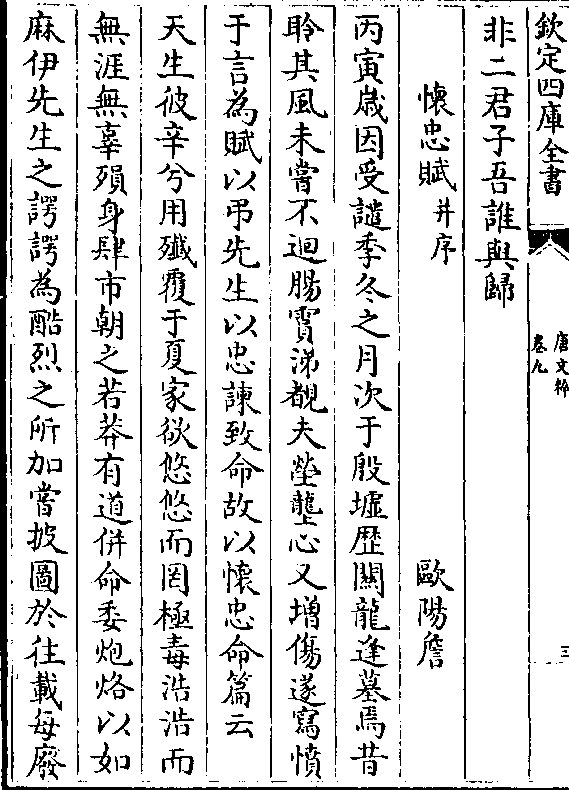 欽定四庫全書
唐文粹
卷九
三
非二君子吾誰與歸
懷忠賦并序
歐陽詹
丙寅歲因受譴季冬之月次于殷墟歷關龍逄墓焉昔
聆其風未嘗不迴腸霣涕覩夫塋壟心又增傷遂寫憤
于言為賦以弔先生以忠諫致命故以懷忠命篇云
天生彼辛兮用殲覆于夏家欲悠悠而罔極毒浩浩而
無涯無辜殞身肆市朝之若莽有道併命委炮烙以如
麻伊先生之諤諤為酷烈之所加嘗披圖於往載每廢